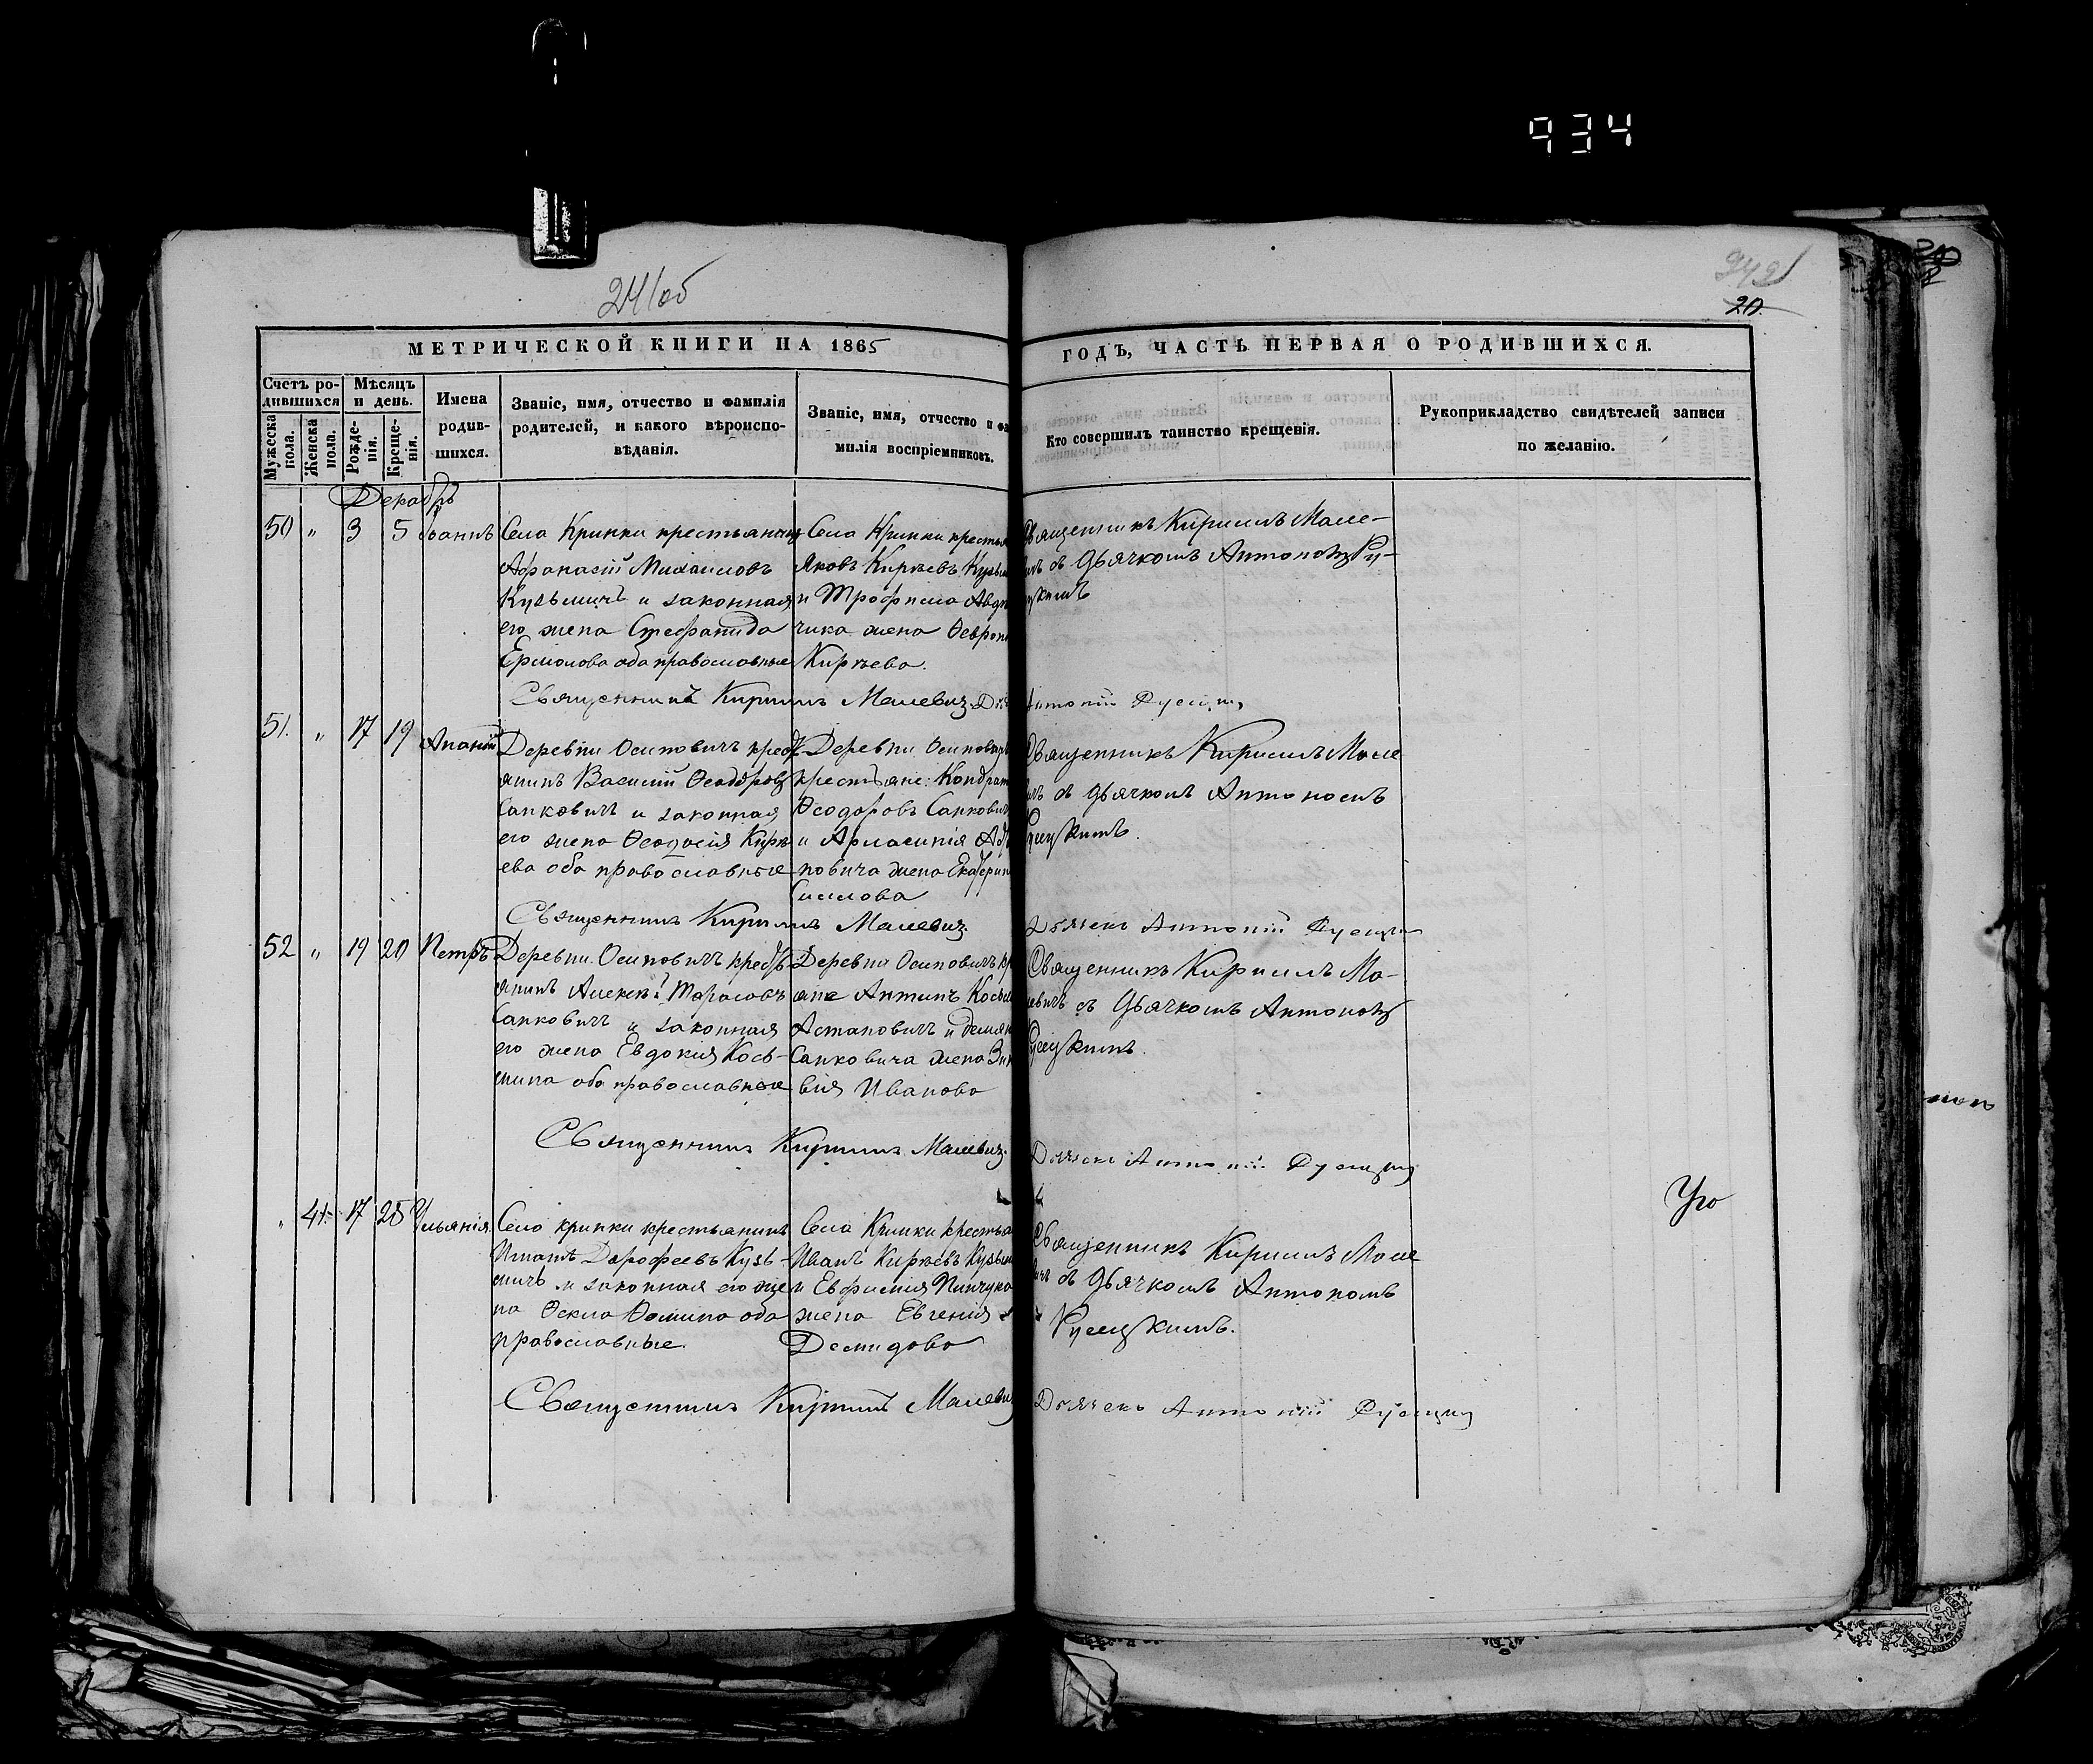 934
241об
242
20.
МЕТРИЧЕСКОЙ КНИГИ НА 1865
ГОДЪ, ЧАСТЬ ПЕРВАЯ О РОДИВШИХСЯ.
Счетъ ро-
дившихся
Мужеска
пола.
Женска
пола.
Мѣсяцъ
и день.
Рожде-
нія.
Креще-
нія.
Имена
родив-
шихся.
Званіе, имя, отчество и фамилія
родителей, и какого вѣроиспо-
вѣданія.
Званіе, имя, отчество и фа
милія воспріемниковъ.
Кто совершилъ таинство крещенія.
Рукоприкладство свидѣтелей записи
по желанію.
Декабрь
50 " 3 5 Іоаннъ
Села Кринки крестьянинъ
Афанасій Михаиловъ
Кузьмичъ и законная
его жена Стефанида
Ермолова оба православные
Села Кринки крестья
Яковъ Кирѣевъ Кузьм
и Трофима Авдѣ
чика жена Февро
Кирѣева.
Священникъ Кириллъ Мале-
ичъ съ Дьячкомъ Антономъ Ру-
цкимъ
Священникъ Кириллъ Малевичъ. Дь
Антоній Русецкій
51. " 17 19 Ананій
Деревни Осиповичъ крест
янинъ Василій Ѳеодоровъ
Санковичъ и законная
его жена Ѳеодосія Кирѣ
ева оба православные
Деревни Осиповичъ
крестьяне: Кондрат
Ѳеодоровъ Санкович
и Арсенія А
повича жена Екатерин
Силова
Священникъ Кириллъ Мале
ичъ съ Дьячкомъ Антономъ
Русецкимъ.
Священникъ Кириллъ Малевичъ.
Дьячекъ Антоній Русецкій
52 " 19 20 Петръ
Деревни Осиповичъ кресть
янинъ Алексѣй Тарасовъ
Санковичъ и законная
его жена Евдокія Кось-
мина оба православные
Деревни Осиповичъ кр
яне Антипъ Косьм
Астаповичъ и Демьян
Санковича жена Зин
вія Иванова
Священникъ Кириллъ Ма-
левичъ съ Дьячкомъ Антономъ
Русецкимъ.
Священникъ Кириллъ Малевичъ.
Дьячекъ Антоній Русецкій
" 41. 17 25 Ульянія
Села кринки крестьянинъ
Игнатъ Дорофеевъ Кузь-
мичъ и законная его же
на Ѳекла Ѳомина оба
православные.
Села Кринки крестья
Иванъ Кирѣевъ Кузьм
и Ефимія Пинчука
жена Евгенія
Демидова
Священникъ Кириллъ Мале
вичъ съ Дьячкомъ Антономъ
Русецкимъ.
Священникъ Кириллъ Малеви
Дьячекъ Антоній Русецкій